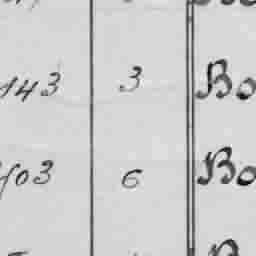 143 3 Bo
403 6 Bo